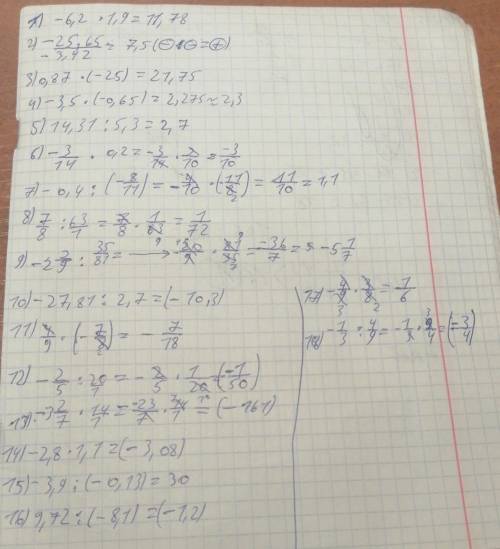 1) -6,2 · 1,9 = 11,78
2) -25,65/-3,42 = 7,5 (⊖ і ⊖ = ⊕)
3) 0,87 · (-25) = 21,75
4) -3,5 · (-0,65) = 2,275 ≈ 2,3
5) 14,31 : 5,3 = 2,7
6) -3/14 · 0,2 = -3/14 · 2/10 = -3/10
7) -0,4 : (-8/11) = -4/10 · (-11/8) = 11/10 = 1,1
8) 7/8 : 63/1 = 7/8 · 1/63 = 1/72
9) -2 2/9 : 35/81 = → -20/9 · 81/35 = -36/7 = -5 1/7
10) -27,81 : 2,7 = (-10,3)
11) 4/9 · (-7/8) = -7/18
12) -2/5 : 20/1 = -2/5 · 1/20 = (-1/50)
13) -3 2/7 · 14/1 = -23/7 · 14/1 = (-161)
14) -2,8 · 1,1 = (-3,08)
15) -3,9 : (-0,13) = 30
16) 9,72 : (-8,1) = (-1,2)
17) -4/9 · 3/8 = 1/6
18) -1/3 : 4/9 = -1/3 · 9/4 = (-3/4)